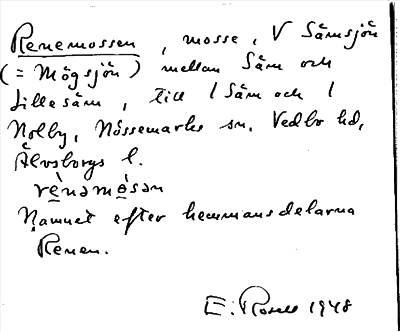 Renemossen, mosse, V Sämsjön
(= Mögsjön) mellan Säm och
Lillesäm, till 1 Säm och 1
Nolby, Nössemarks sn. Vedbo hd,
Älvsborgs l.
rènəmósən
Namnet efter hemmansdelarna
Renen.
E. Rosell 1948